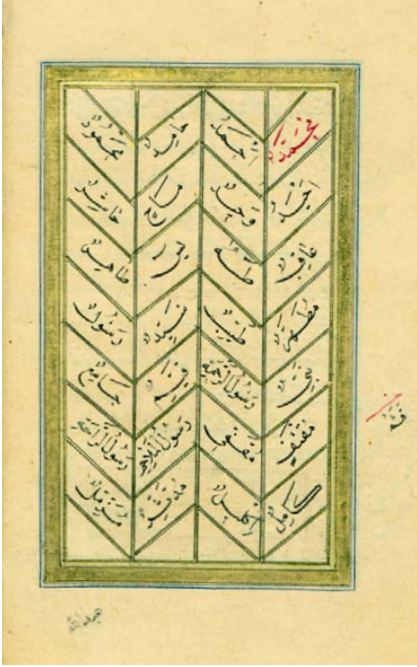 محمد احمد حامد محمود
احيد وحيد ماح حاشر
عاقب طه يس طاهر
مطهر طيب سيد رسول
نبي رسول الرحمة قيم جامع
مقتف مقفى رسول الملاحم رسول الراحة
كامل اكليل مدثر مزمل
عبد الله